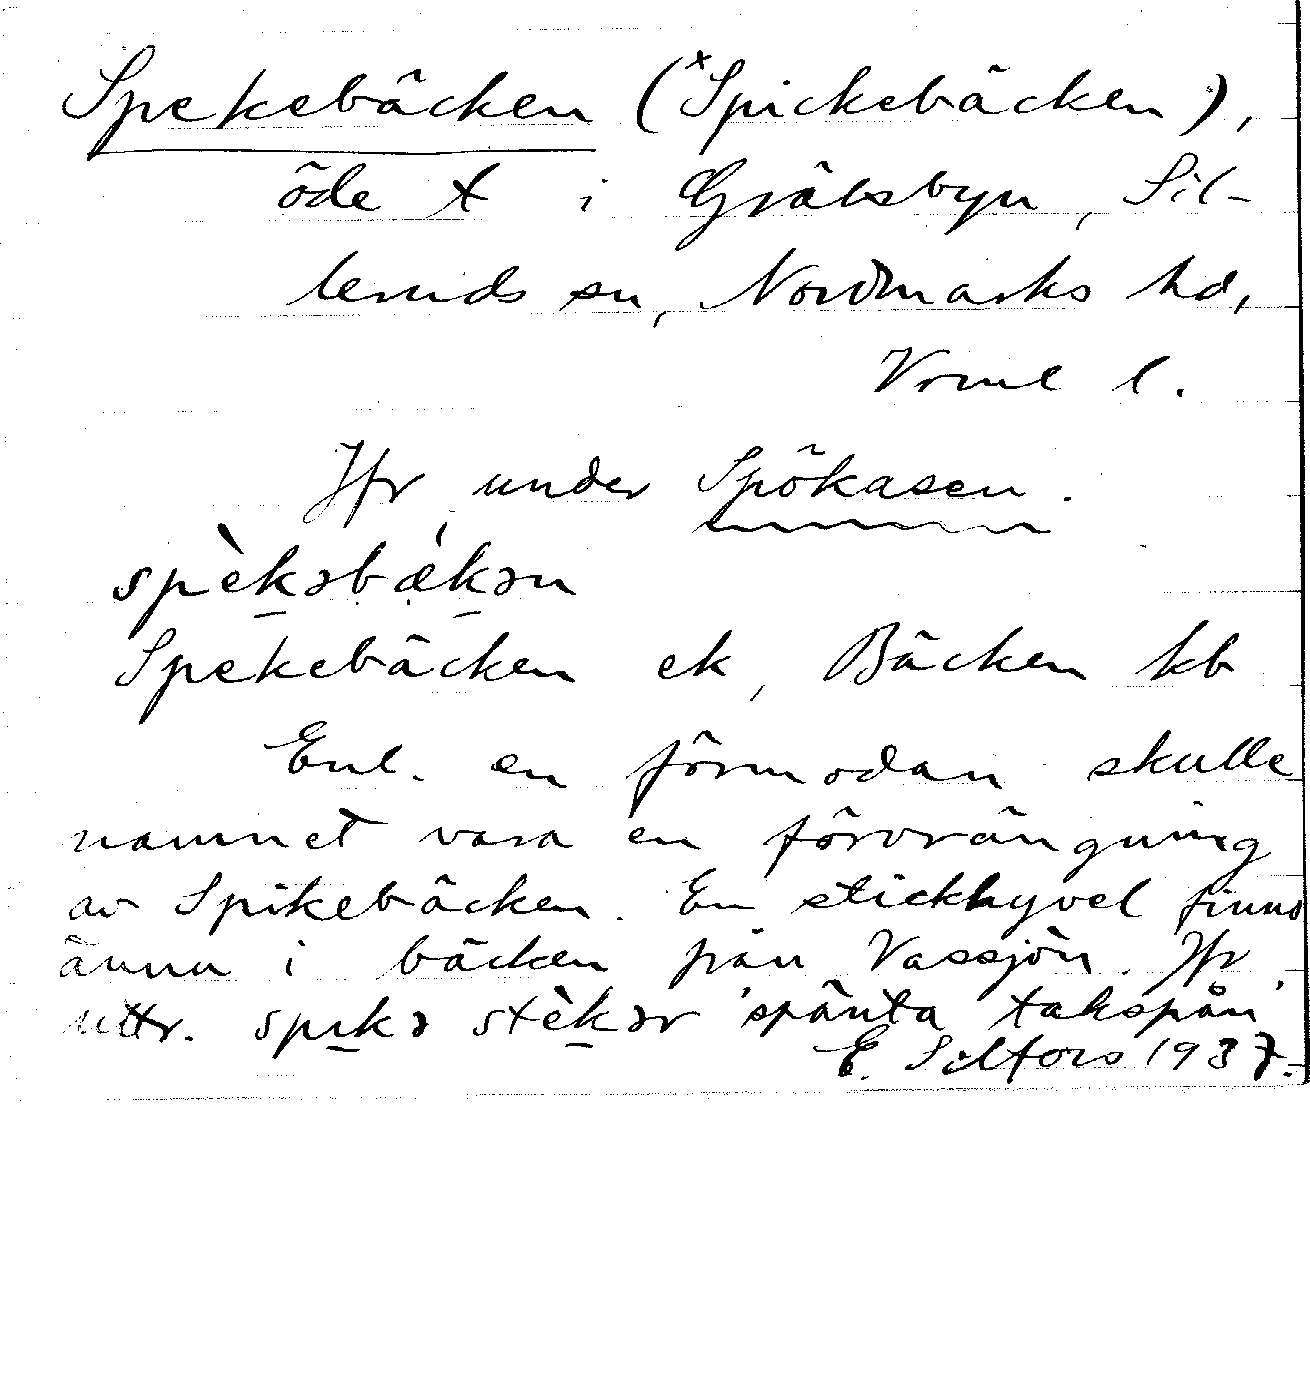 Spekebäcken (ˣSpickebäcken),
öde t i Gräsbyn, Sil-
leruds sn, Nordmarks hd,
Vrml l.
Jfr under Spökåsen.
spèkəbǽkən
Spekebäcken ek, Bäcken kb
Enl. en förmodan skulle
namnet vara en förvrängning
av Spikebäcken. En stickhyvel finns
ännu i bäcken från Vassjön. Jfr
uttr. spikə stèkər 'spänta takspån'
E. Silfors 1937.